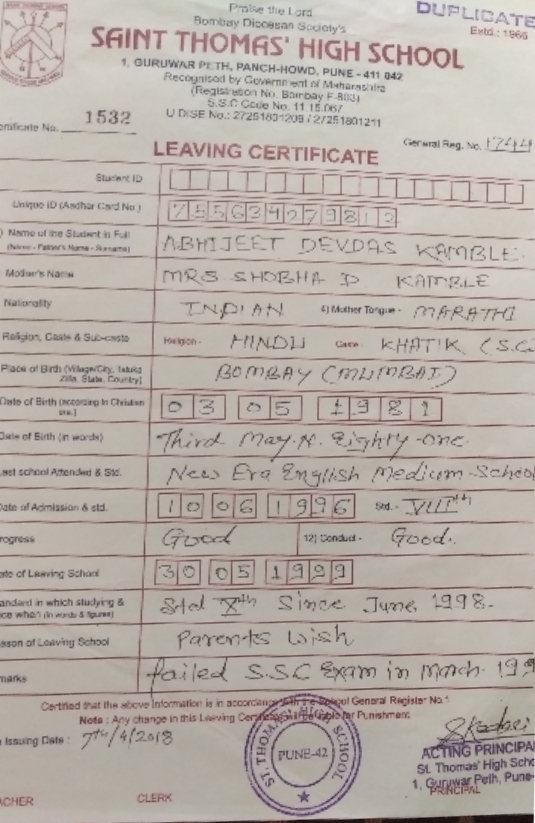 Praise the Lord
DUPLICATE
Bombay Diocesan Society's
Estd.: 1966
SAINT THOMAS' HIGH SCHOOL
1, GURUWAR PETH, PANCH-HOWD, PUNE - 411 042
Recognised by Government of Maharashtra
(Registration No. Bombay F-803)
S.S.C Code No. 11.15.067
U DISE No.: 27251801209 / 27251801211
ertificate No. 1532
General Reg. No. 1744
LEAVING CERTIFICATE
Student ID
Unique ID (Aadhar Card No.) 755634279813
) Name of the Student in Full ABHIJEET DEVDAS KAMBLE
(Name - Father's Name - Surname)
Mother's Name MRS SHOBHA D. KAMBLE
Nationality INDIAN 4) Mother Tongue - MARATHI
Religion, Caste & Sub-caste Religion - HINDU Caste - KHATIK (S.C
Place of Birth (Village/City, Taluka BOMBAY (MUMBAI)
Zilla, State, Country)
Date of Birth (according to Christian 03 05 1981
era.)
Date of Birth (in words) Third May N. Eighty-one
ast school Attended & Std. New Era English Medium School
Date of Admission & std. 10 06 1996 Std. - VIIIth
rogress Good 12) Conduct - Good.
ate of Leaving School 30 05 1999
andard in which studying & Std Xth Since June 1998-
ce when (in words & figures)
ason of Leaving School Parents Wish
marks failed S.S.C Exam in March 199
Certified that the above information is in accordance with the School General Register No.1
Note : Any change in this Leaving Certificate will be liable for Punishment
Issuing Date : 7th/4/2018
ST THOMAS' HIGH SCHOOL
PUNE-42
ACTING PRINCIPA
St. Thomas' High Scho
1, Guruwar Peth, Pune-
PRINCIPAL
ACHER CLERK